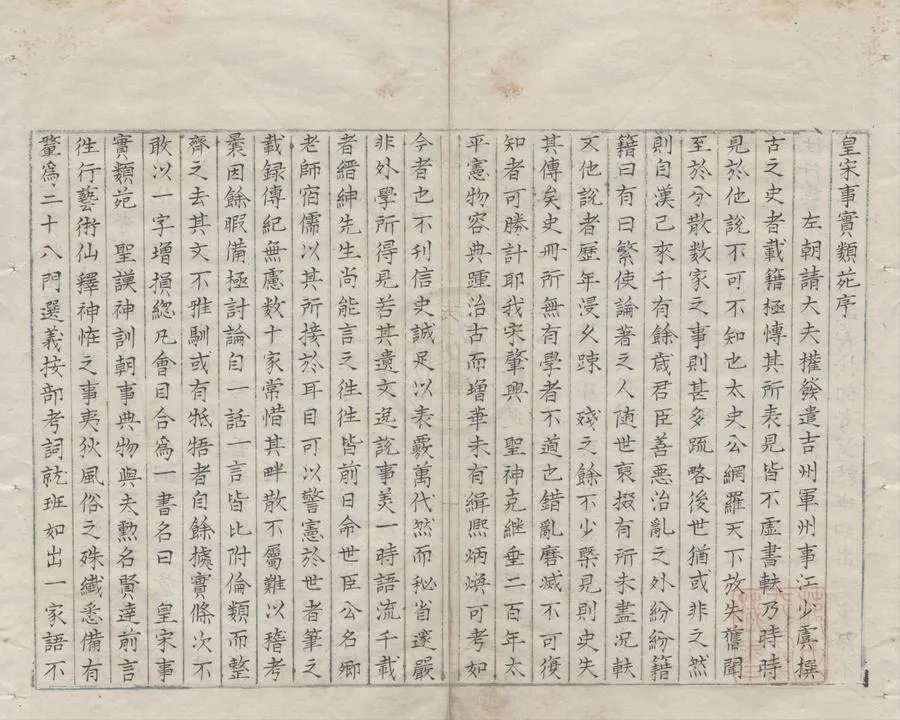 皇宋事實類苑序
左朝請大夫權發遣吉州軍州事江少虞撰
古之史者載籍極慱其所表見皆不虛書軼乃時時
見於他說不可不知也太史公網羅天下放失舊聞
至於分散數家之事則甚多疏略後世猶或非之然
則自漢已來千有餘歲君臣善惡治亂之外紛紛籍
籍曰有曰繁使論著之人随世裒掇有所未盡况軼
又他說者歷年浸久踈殘之餘不少槩見則史失
其傳矣史冊所無有學者不道也錯亂磨滅不可復
知者可勝計耶我宋肇興聖神克継垂二百年太
平憲物容典踵治古而增華未有緝熈炳煥可考如
今者也不刊信史誠足以表覈萬代然而秘省邃嚴
非外學所得見若其遺文逸說事美一時語流千載
者縉紳先生尚能言之徃徃皆前日命世臣公名鄉
老師宿儒以其所接於耳目可以警憲於世者筆之
載録傳紀無慮數十家常惜其畔散不屬難以稽考
曩因餘暇備極討論自一話一言皆比附倫類而整
齊之去其文不雅馴或有牴牾者自餘摭實條次不
敢以一字增損緫凡會目合為一書名曰皇宋事
實類苑聖謨神訓朝事典物與夫勲名賢達前言
徃行藝術仙釋神恠之事夷狄風俗之殊纖悉備有
釐為二十八門選義按部考詞就班如出一家語不